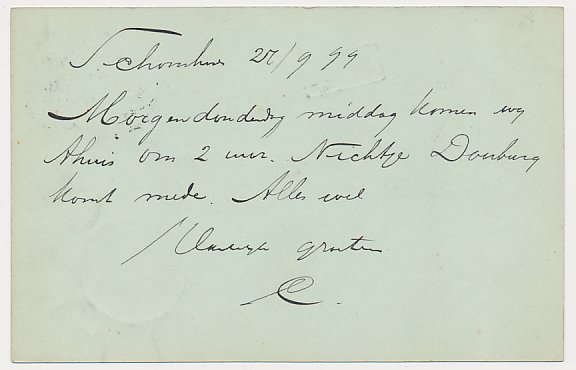 Schoonhoven 27/9 99
Morgen donderdag middag komen wy
thuis om 2 uur. Nichtje Domburg
komt mede. Alles wel
Hartelyk groeten
C.